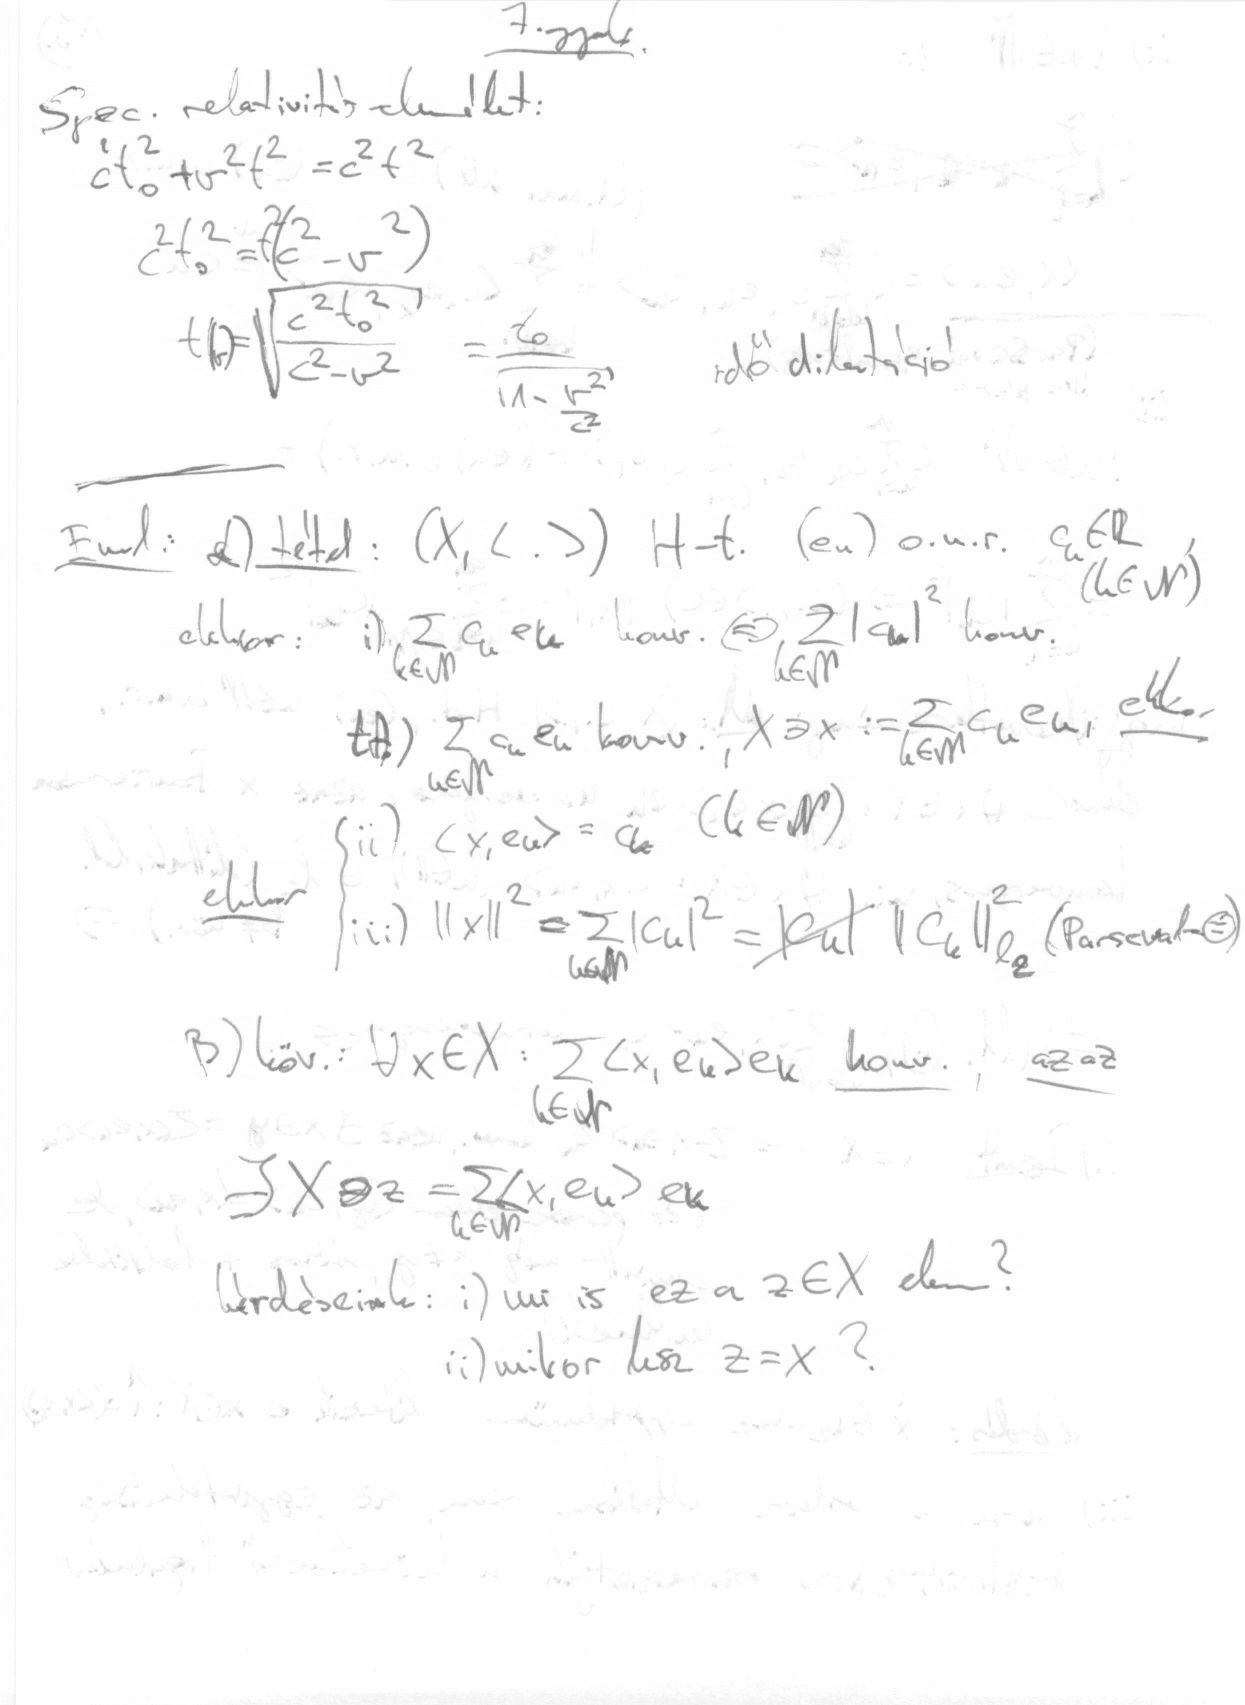 7. gyak.
Spec. relativitáselmélet:
c²t₀² + v²t² = c²t²
c²t₀² = t²(c² - v²)
t(v) = √(c²t₀² / (c² - v²)) = t₀ / √(1 - v²/c²) idő dilatáció
Eml.: a) tétel: (X, < . >) H-t. (eₖ) o.n.r. cₖ∈ℝ, (k∈ℕ)
ekkor: i) ∑_{k∈ℕ} cₖ eₖ konv. ⇔ ∑_{k∈ℕ} |cₖ|² konv.
tfh) ∑_{k∈ℕ} cₖ eₖ konv., X∋x := ∑_{k∈ℕ} cₖ eₖ, ekkor
ii) <x, eₖ> = cₖ (k∈ℕ)
ekkor
iii) ||x||² = ∑_{k∈ℕ} |cₖ|² = ||cₖ||²_{ℓ₂} (Parseval-=)
B) köv.: ∀x∈X: ∑_{k∈ℕ} <x, eₖ> eₖ konv., azaz
∃ X∋z = ∑_{k∈ℕ} <x, eₖ> eₖ
kérdéseink: i) mi is ez a z∈X elem?
ii) mikor lesz z=x?